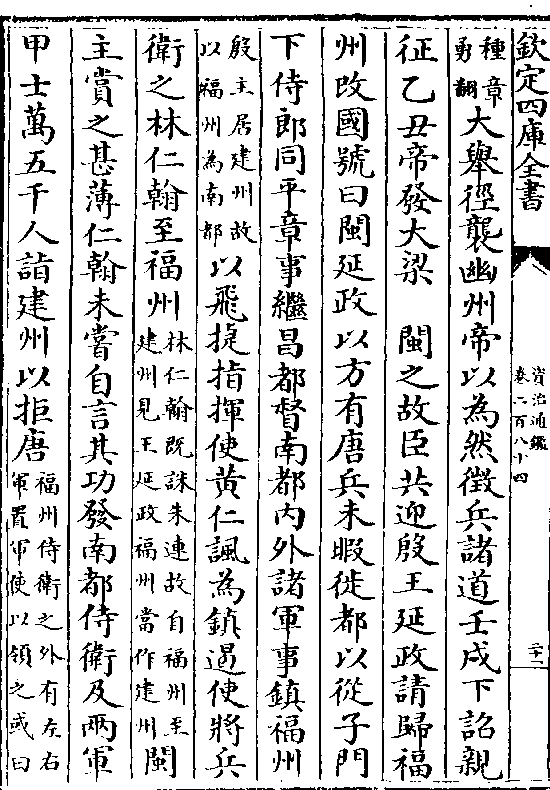 欽定四庫全書
資治通鑑
卷二百八十四
二十二
種章
勇翻
大舉徑襲幽州帝以為然徵兵諸道壬戌下詔親
征乙丑帝發大梁 閩之故臣共迎殷王延政請歸福
州改國號曰閩延政以方有唐兵未暇徙都以從子門
下侍郎同平章事繼昌都督南都内外諸軍事鎮福州
殷主居建州故
以福州為南都
以飛捷指揮使黄仁諷為鎮遏使將兵
衛之林仁翰至福州
林仁翰既誅朱連故自福州至
建州見王延政福州當作建州
閩
主賞之甚薄仁翰未嘗自言其功發南都侍衛及兩軍
甲士萬五千人詣建州以拒唐
福州侍衛之外有左右
軍置軍使以領之或曰